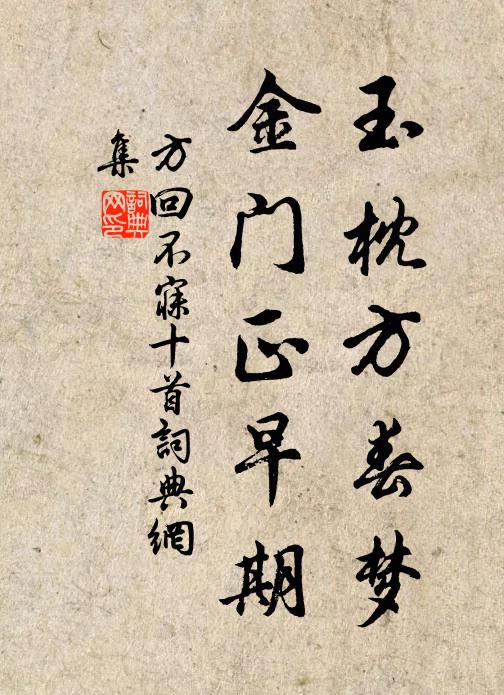 玉枕方春梦
金门正早期
方回不寐十首詞典網
集
詞典
网印